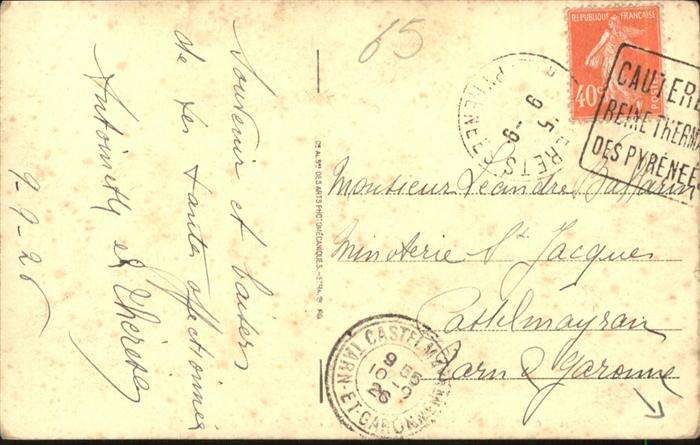 65
Souvenir et baisers
de tes tantes affectionnées
Antoinette et Thérèse
9-9-26
REPUBLIQUE FRANÇAISE
40c
POSTES
CAUTERE
REINE THERMA
DES PYRÉNÉE
ERETS
PYRENEES
9-9
Monsieur Léandre
Minoterie St Jacques
Castelmayran
Tarn & Garonne
CASTELMAY
TARN-ET-GARONNE
10-9
26